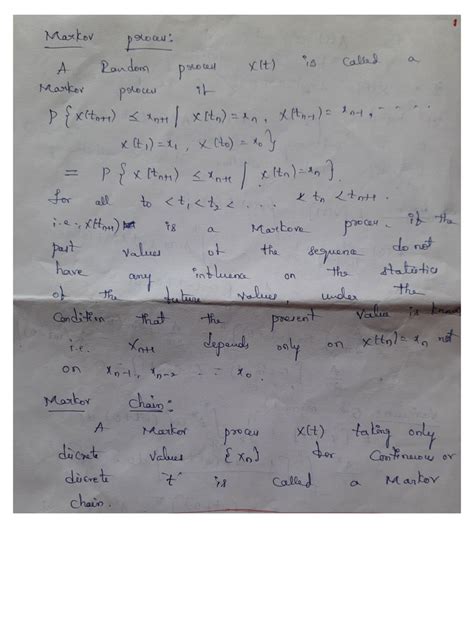 1
Markov process:
A Random process X(t) is called a
Markov process if
P { X(tn+1) ≤ xn+1 / X(tn) = xn, X(tn-1) = xn-1, - - - -
X(t1) = x1, X(t0) = x0 }
= P { X(tn+1) ≤ xn+1 / X(tn) = xn }.
for all to < t1 < t2 < . . . < tn < tn+1.
i.e., X(tn+1) is a Markove process if the
past values of the sequence do not
have any influence on the statistics
of the future values, under the
Condition that the present value is known
i.e. Xn+1 depends only on X(tn) = xn not
on xn-1, xn-2 - - - x0.
Markov Chain:
A Markov process X(t) taking only
discrete values {xn} for Continuous or
discrete 't' is called a Markov
chain.